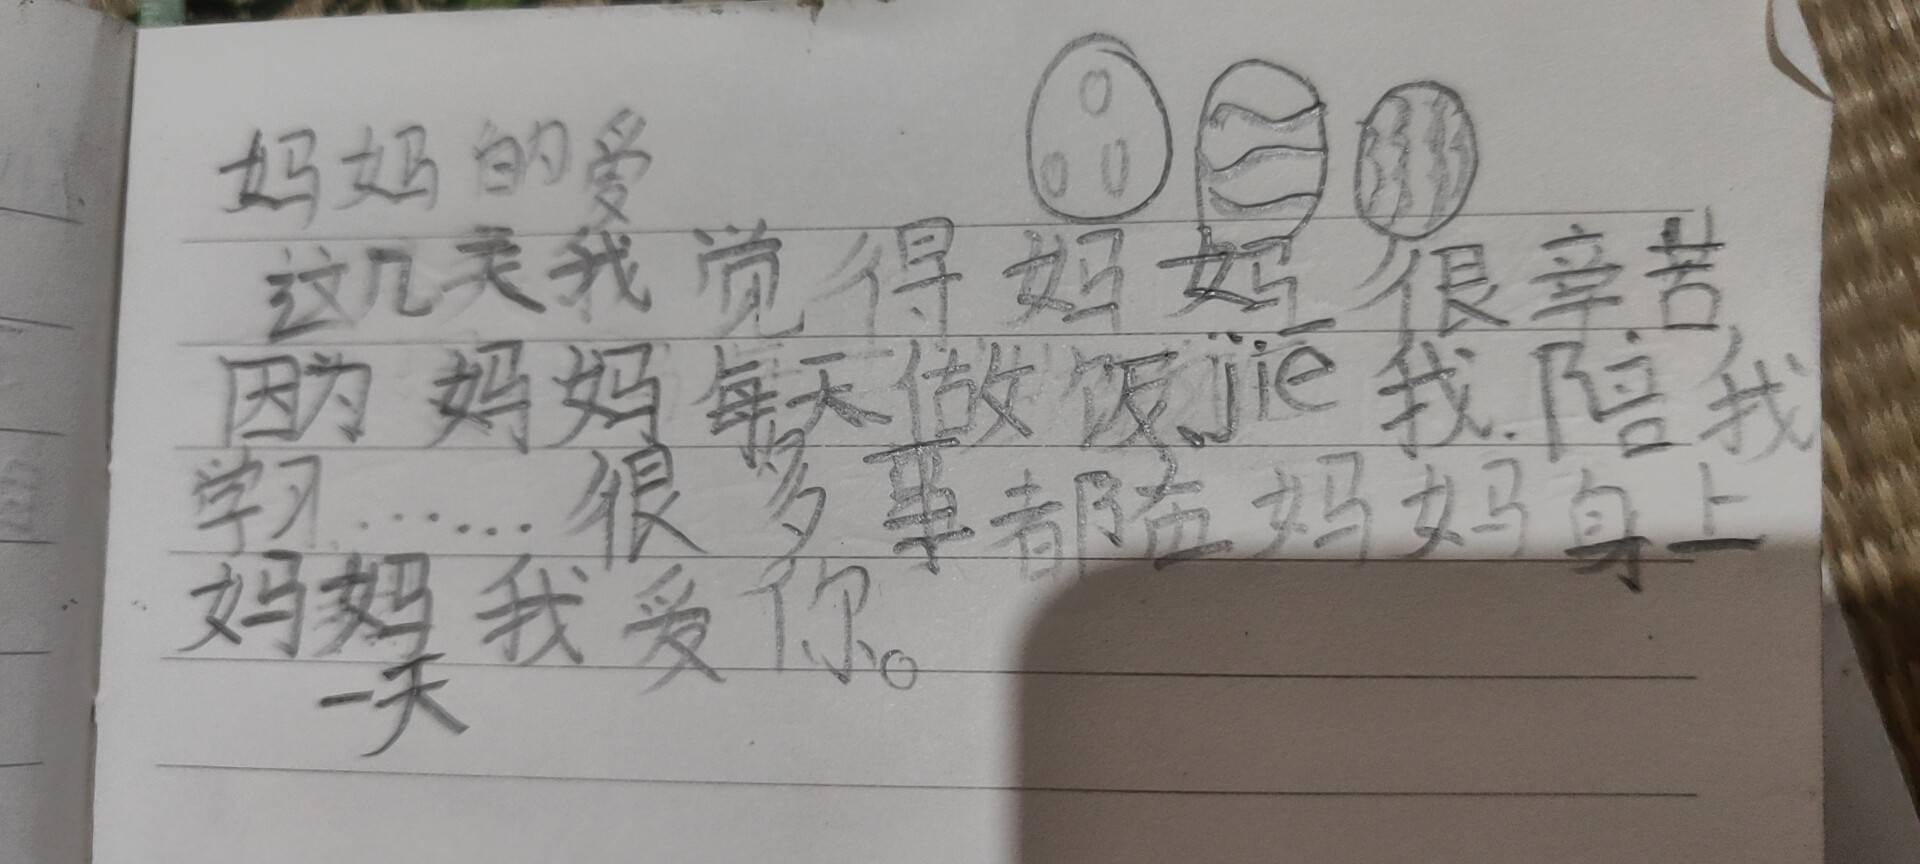 妈妈的爱
这几天我觉得妈妈很辛苦
因为妈妈每天做饭、jiē我.陪我
学习……很多事都在妈妈身上
妈妈妈妈我爱你。
一天